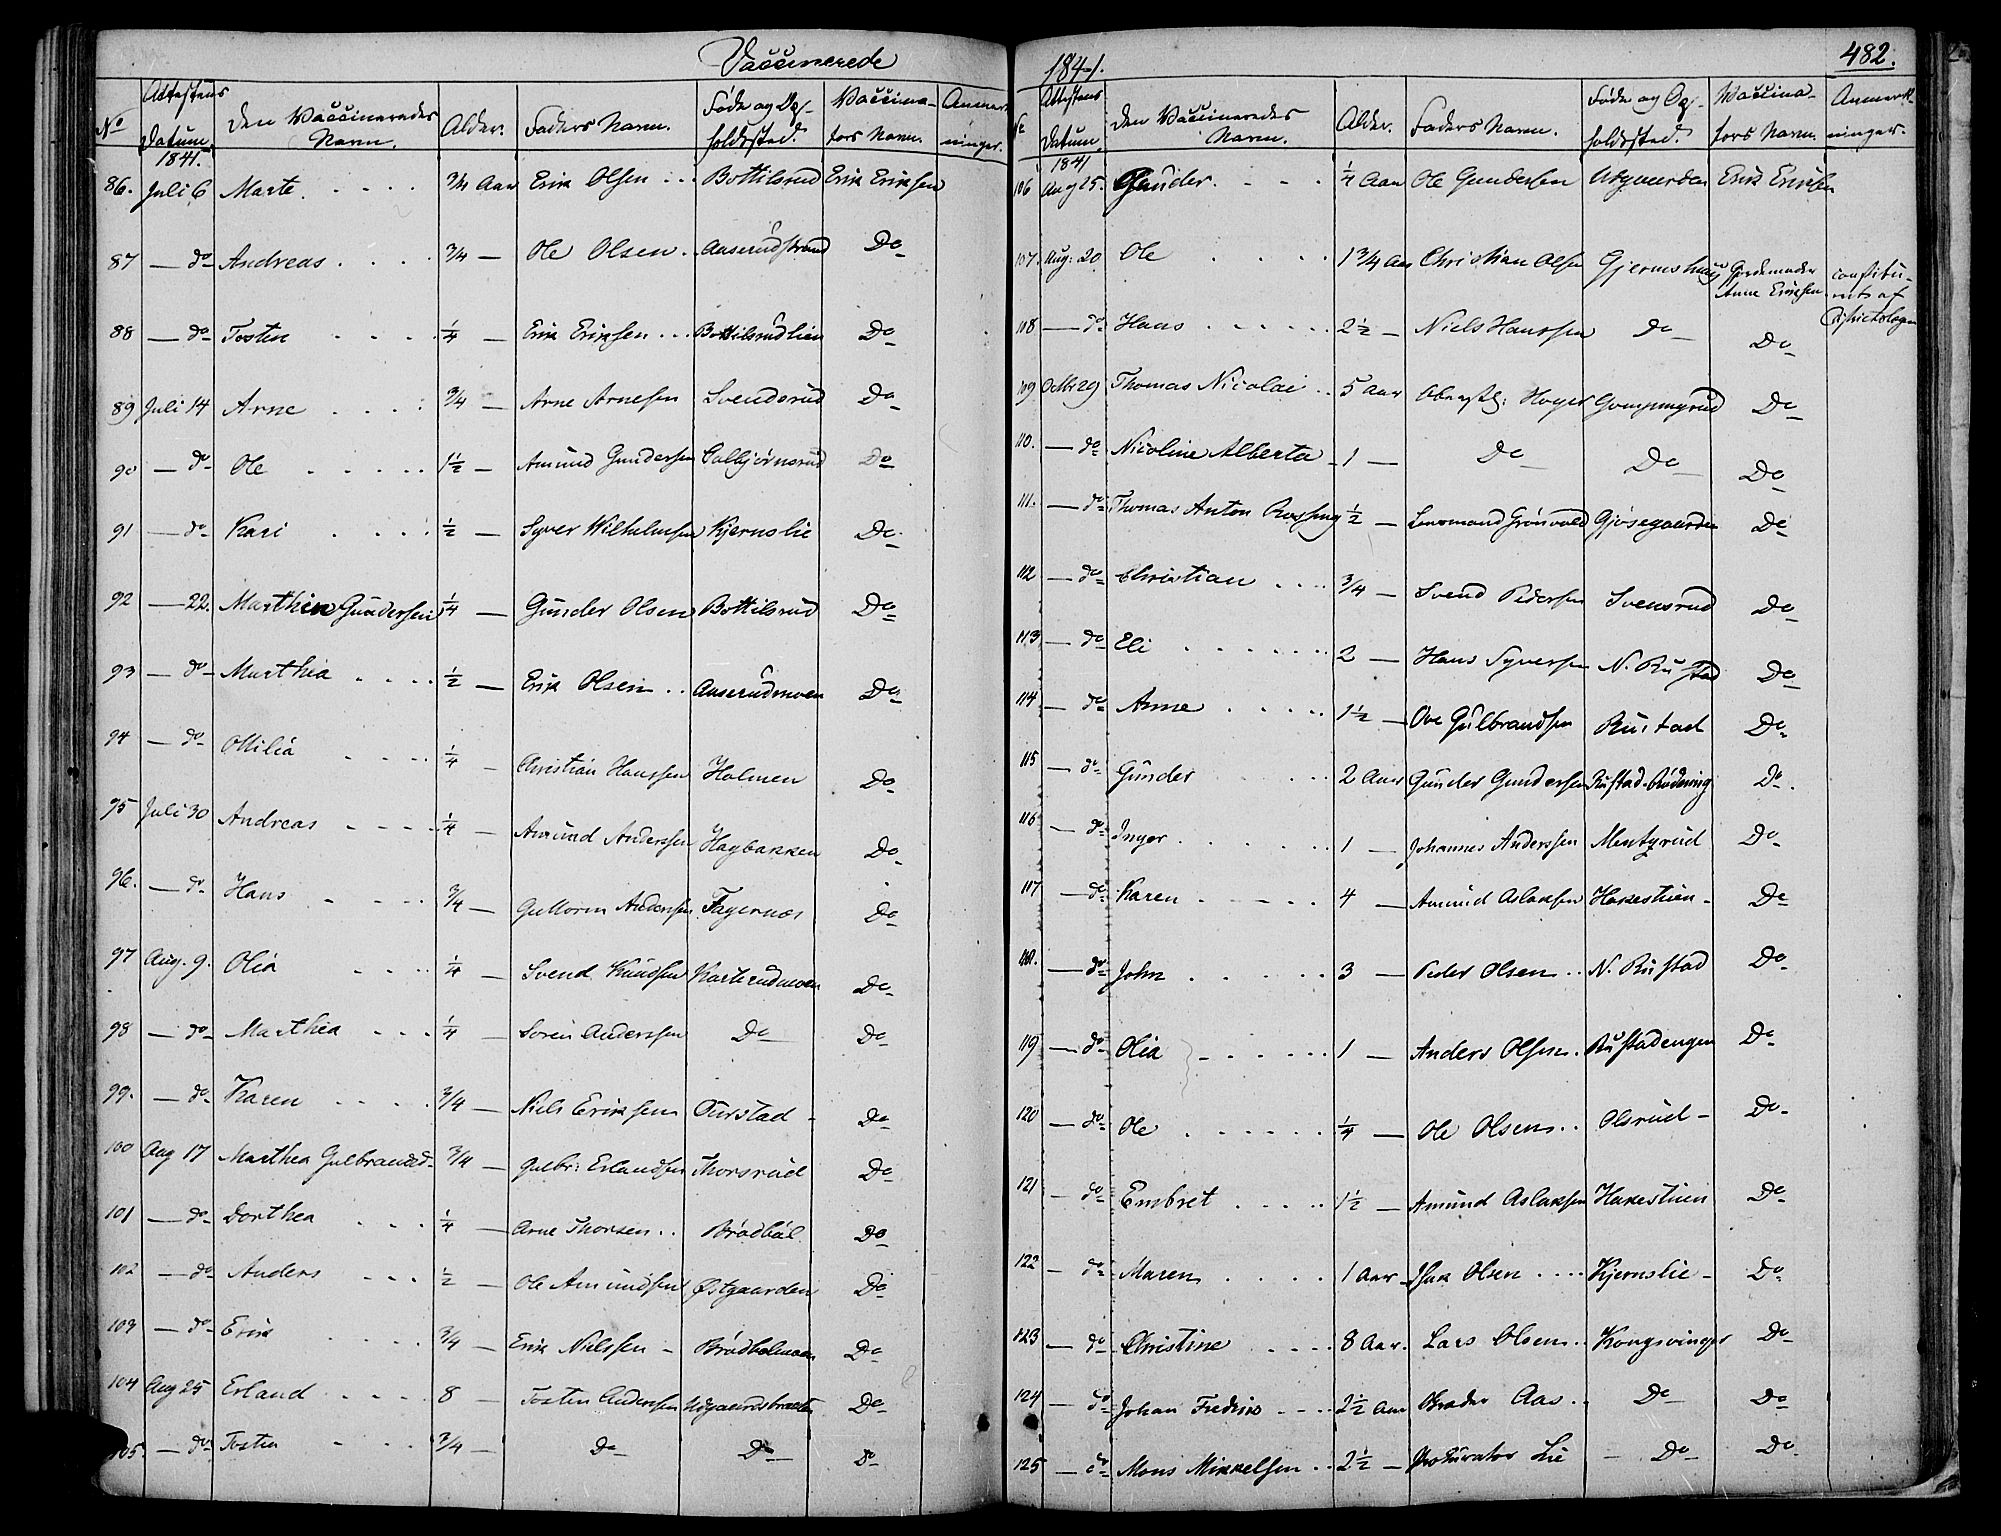 Vaccinerede
1841.
482.
No Attestens Datum Den Vaccineredes Navn. Alder. Faders Navn. Føde og Opholdssted. Vaccinators Navn. Anmærkninger.
1841.
86. Juli 6 Marte . . . . 3/4 Aar Erik Olsen . . . Bottilsrud Erik Eriksen
87 — do Andreas . . . . 3/4 — Ole Olsen . Aaserudstrand Do
88 — do Tosten . . . . 1/4 — Erik Eriksen . . . Bottilsrudlien Do
89 Juli 14 Arne . . . . 3/4 — Arne Arnesen Svenderud Do
90 — do Ole . . . . . 1 1/2 — Amund Gundersen Colbjørnsrud Do
91 — do Kari . . . . 1/2 — Syver Wilhelmsen Kjernslie Do
92 — 22. Marthin Gundersen 1/4 — Gunder Olsen Bottilsrud Do
93 — do Marthia . . . . 1/2 — Erik Olsen . . Aaserudmoen Do
94 — do Ottilia . . . . 1/4 — Christian Hanssen Holmen Do
95 Juli 30 Andreas . . . . 1/4 — Amund Anderssen Hagbakken Do
96. — do Hans . . . . 3/4 — Guttorm Anderssen Fagernæs Do
97 Aug. 9. Olia . . . . 1/4 — Svend Knudsen Karterudmoen Do
98 — do Marthea . . . 1/4 — Søren Anderssen Do Do
99. — do Karen . . . . 3/4 — Niels Eriksen Ourstad — Do
100 Aug 17 Marthea Gulbrandsd. 3/4 — Gulbr: Erlandsen Thorsrud Do
101 — do Dorthea . . . 1/4 — Arne Thorsen . . Brødbøl Do
102 — do Anders . . . 1/2 — Ole Amundsen Østgaarden Do
103 — do Erik . . . . 3/4 — Erik Nielssen — Brødbolmoen Do
104 Aug 25 Erland . . . . 8 — Tosten Andersen Udgaardsbraaten Do
105. — do Tosten . . . 3/4 — Do Do Do
No Attestens Datum Den Vaccineredes Navn. Alder. Faders Navn. Føde og Opholdssted. Vaccinators Navn. Anmærkninger.
1841
106 Aug 25. Gunder . . . 1/4 Aar Ole Gundersen Udgaarden Erik Eriksen
107. Aug: 20 Ole . . . . 1 3/4 Aar Christian Olsen Gjermshuus Gjordemoder Anne Eriksen constitueret af Districtslægen
108 — do Hans . . . . . 2 1/2 — Niels Hanssen Do Do
109 Octbr 29 Thomas Nicolai . . 5 Aar Oberstl: Høyer Gompingrud Do
110. — do Nicoline Alberta 1 — Do Do Do
111. — do Thomas Anton Rossing 1/2 — Lensmand Grönvold Gjøsegaarden Do
112 — do Christian . . . . 3/4 — Svend Pedersen Svensrud Do
113 — do Eli . . . . . . 2 — Hans Syversen N. Rustad Do
114 — do Anne . . . . . 1 1/2 — Ove Gulbrandsen Rustad Do
115 — do Gunder . . . . 2 Aar Gunder Gundersen Rustad-Rødning Do.
116 — do Inger . . . . . . 1 — Johannes Anderssen Mentzrud Do
117 — do Karen . . . . . 4 — Amund Aslaksen Hakestuen — Do
118. — do John . . . . . 3 — Peder Olsen . . N. Rustad Do
119 — do Olia . . . . . 1 — Anders Olsen . Rustadengen Do
120 — do Ole . . . . . . 1/4 — Ole Olsen . . Olsrud — Do
121 — do Embret . . . . 1 1/2 — Amund Aslaksen Hakestuen Do
122 — do Maren . . . . 1 Aar Isak Olsen . . . . Kjernslie — Do
123 — do Christine . . . . 8 Aar. Lars Olsen . . Kongsvinger Do
124 — do Johan Fredrik . . . . 2 1/2 Aar Aas . . Do Do
125 — do Mons Mikkelsen . . 2 1/2 — Prokurator Lie — Do Do